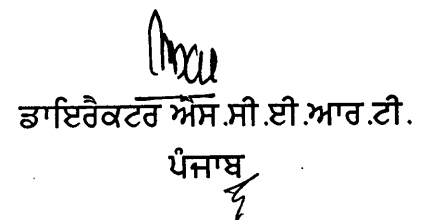 ਡਾਇਰੈਕਟਰ ਐਸ.ਸੀ.ਈ.ਆਰ.ਟੀ.
ਪੰਜਾਬ